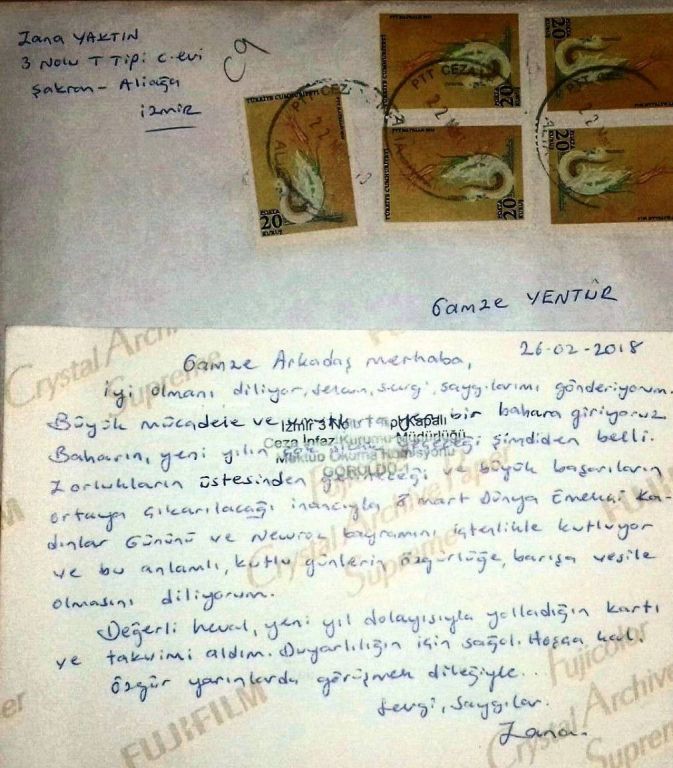 Zana YAKTIN
3 Nolu T Tipi C.evi
Şakran - Aliağa
izmir
C9
TÜRKİYE CUMHURİYETİ
POSTA
20
KURUŞ
20
20
20
20
Gamze YENTÜR
26-02-2018
Gamze Arkadaş merhaba,
iyi olmanı diliyor, selam, sevgi, saygılarımı gönderiyorum.
Büyük mücadele ve bir bahara giriyoruz
Baharın, yeni yılın şimdiden belli.
Zorlukların üstesinden gelineceği ve büyük başarıların
ortaya çıkarılacağı inancıyla 8 mart Dünya Emekçi Ka-
dınlar Gününü ve Newroz bayramını içtenlikle kutluyor
ve bu anlamlı, kutlu günlerin özgürlüğe, barışa vesile
olmasını diliyorum.
Değerli heval, yeni yıl dolayısıyla yolladığın kartı
ve takvimi aldım. Duyarlılığın için sağol. Hoşça kal.
Özgür yarınlarda görüşmek dileğiyle...
Sevgi, Saygılar.
Zana.
İzmir 3 Nolu Kapalı
Ceza İnfaz Kurumu Müdürlüğü
Mektup Okuma Komisyonu
GÖRÜLDÜ-1
Crystal Archive
Supreme
Fujicolor
Crystal Archive Paper
Supreme
FUJIFILM
Fujicolor
Crystal Archive
Supreme